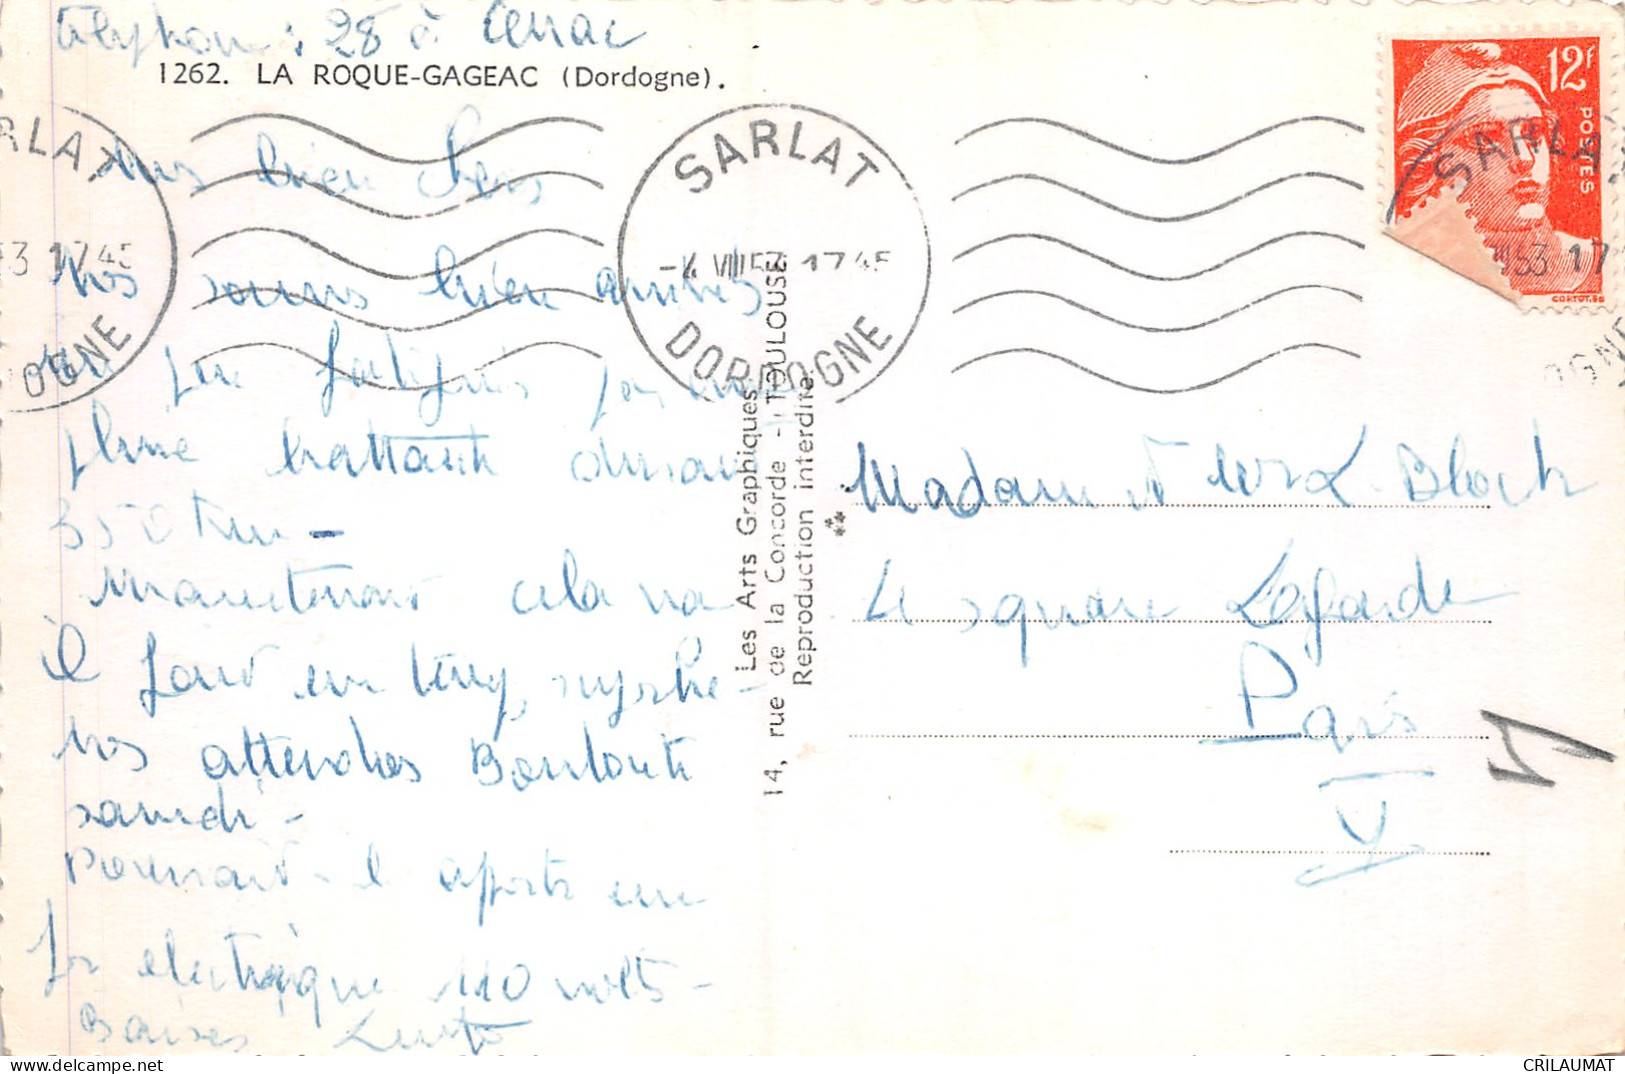 téléphone : 28 à Cénac
1262. LA ROQUE-GAGEAC (Dordogne).
12F
POSTES
CORTOT.
SARLAT
-4 VIII 53 1745
DORDOGNE
RLAT
53 1745
OGNE
SARLA
VIII 53 17
OGNE
mes bien chers
nos sommes bien arrivés
un peu fatigués par une
pluie battante durant
350 km -
Maintenant cela va
il fait un temps
nos attendons
samedi -
Pourrait-il apporter un
fer electrique 110 volts -
Baisers
Les Arts Graphiques
14, rue de la Concorde - TOULOUSE
Reproduction interdite
Madame L. Bloch
4 square Lagarde
Paris
V
CRILAUMAT